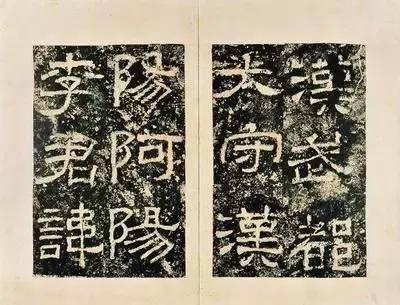 漢武都
太守漢
陽阿陽
李君諱